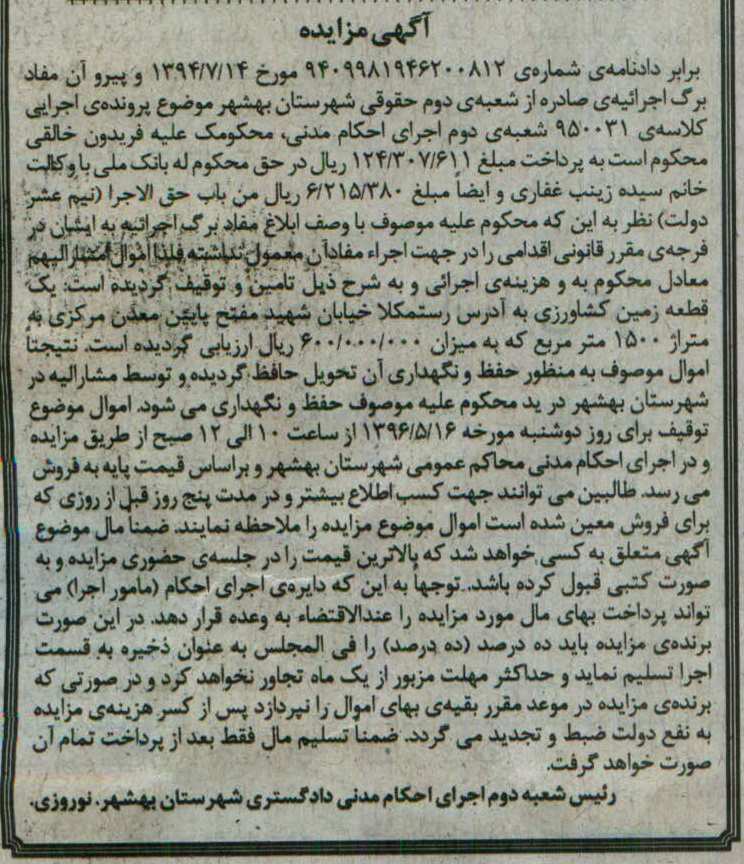 آگهی مزایده
برابر دادنامه‌ی شماره‌ی ۹۴۰۹۹۸۱۹۴۶۲۰۰۸۱۲ مورخ ۱۳۹۴/۷/۱۴ و پیرو آن مفاد
برگ اجرائیه‌ی صادره از شعبه‌ی دوم حقوقی شهرستان بهشهر موضوع پرونده‌ی اجرایی
کلاسه‌ی ۹۵۰۰۳۱ شعبه‌ی دوم اجرای احکام مدنی، محکومک علیه فریدون خالقی
محکوم است به پرداخت مبلغ ۱۲۴/۳۰۷/۶۱۱ ریال در حق محکوم له بانک ملی با وکالت
خانم سیده زینب غفاری و ایضاً مبلغ ۶/۲۱۵/۳۸۰ ریال من باب حق الاجرا (نیم عشر
دولت) نظر به این که محکوم علیه موصوف با وصف ابلاغ مفاد برگ اجرائیه به ایشان در
فرجه‌ی مقرر قانونی اقدامی را در جهت اجراء مفادآن معمول نداشته فلذا اموال مشارالیهم
معادل محکوم به و هزینه‌ی اجرائی و به شرح ذیل تامین و توقیف گردیده است: یک
قطعه زمین کشاورزی به آدرس رستمکلا خیابان شهید مفتح پایین معدن مرکزی به
متراژ ۱۵۰۰ متر مربع که به میزان ۶۰۰/۰۰۰/۰۰۰ ریال ارزیابی گردیده است. نتیجتاً
اموال موصوف به منظور حفظ و نگهداری آن تحویل حافظ گردیده و توسط مشارالیه در
شهرستان بهشهر در ید محکوم علیه موصوف حفظ و نگهداری می شود. اموال موضوع
توقیف برای روز دوشنبه مورخه ۱۳۹۶/۵/۱۶ از ساعت ۱۰ الی ۱۲ صبح از طریق مزایده
و در اجرای احکام مدنی محاکم عمومی شهرستان بهشهر و براساس قیمت پایه به فروش
می رسد. طالبین می توانند جهت کسب اطلاع بیشتر و در مدت پنج روز قبل از روزی که
برای فروش معین شده است اموال موضوع مزایده را ملاحظه نمایند. ضمناً مال موضوع
آگهی متعلق به کسی خواهد شد که بالاترین قیمت را در جلسه‌ی حضوری مزایده و به
صورت کتبی قبول کرده باشد. توجهاً به این که دایره‌ی اجرای احکام (مامور اجرا) می
تواند پرداخت بهای مال مورد مزایده را عندالاقتضاء به وعده قرار دهد. در این صورت
برنده‌ی مزایده باید ده درصد (ده درصد) را فی المجلس به عنوان ذخیره به قسمت
اجرا تسلیم نماید و حداکثر مهلت مزبور از یک ماه تجاور نخواهد کرد و در صورتی که
برنده‌ی مزایده در موعد مقرر بقیه‌ی بهای اموال را نپردازد پس از کسر هزینه‌ی مزایده
به نفع دولت ضبط و تجدید می گردد. ضمناً تسلیم مال فقط بعد از پرداخت تمام آن
صورت خواهد گرفت.
رئیس شعبه دوم اجرای احکام مدنی دادگستری شهرستان بهشهر. نوروزی.